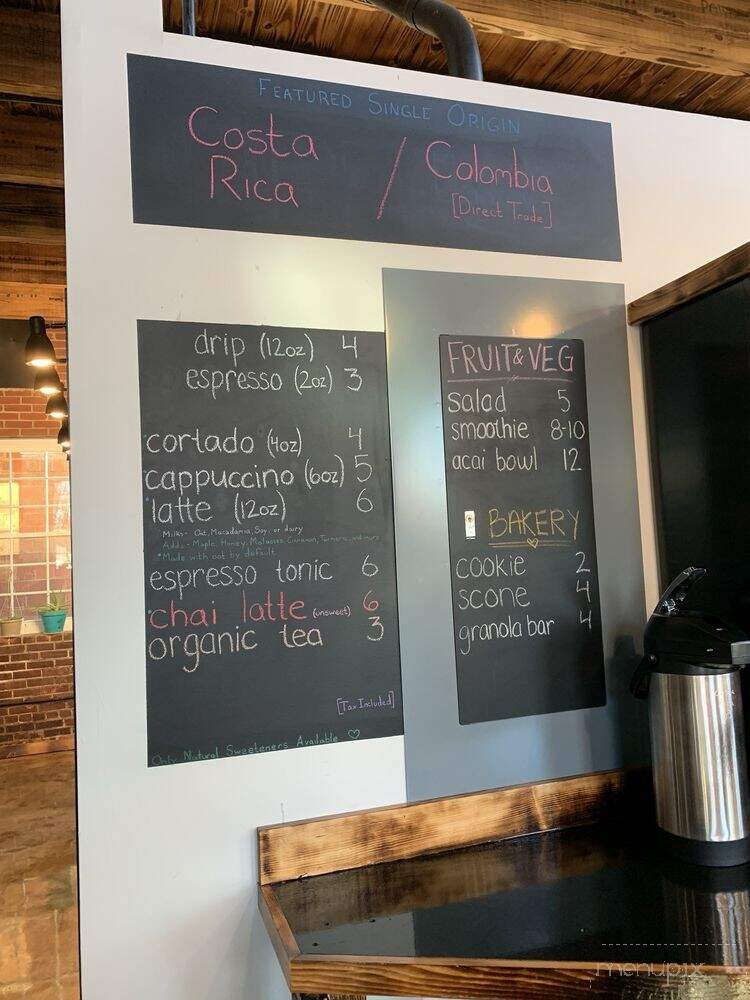 FEATURED SINGLE ORIGIN
Costa Rica / Colombia
[Direct Trade]
drip (12oz) 4
espresso (2oz) 3
cortado (4oz) 4
cappuccino (6oz) 5
latte (12oz) 6
Milks - Oat, Macadamia, Soy, or dairy
Adds - Maple, Honey, Molasses, Cinnamon, Turmeric, and more
*Made with oat by default
espresso tonic 6
chai latte (unsweet) 6
organic tea 3
[Tax Included]
Only Natural Sweeteners Available ♡
FRUIT & VEG
salad 5
smoothie 8-10
acai bowl 12
BAKERY
cookie 2
scone 4
granola bar 4
menupix